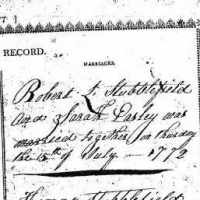 RECORD.
MARRIAGES.
Robert S. Stubblefield
And Sarah Easley was
married together on thirsday
the 15th of July — 1772